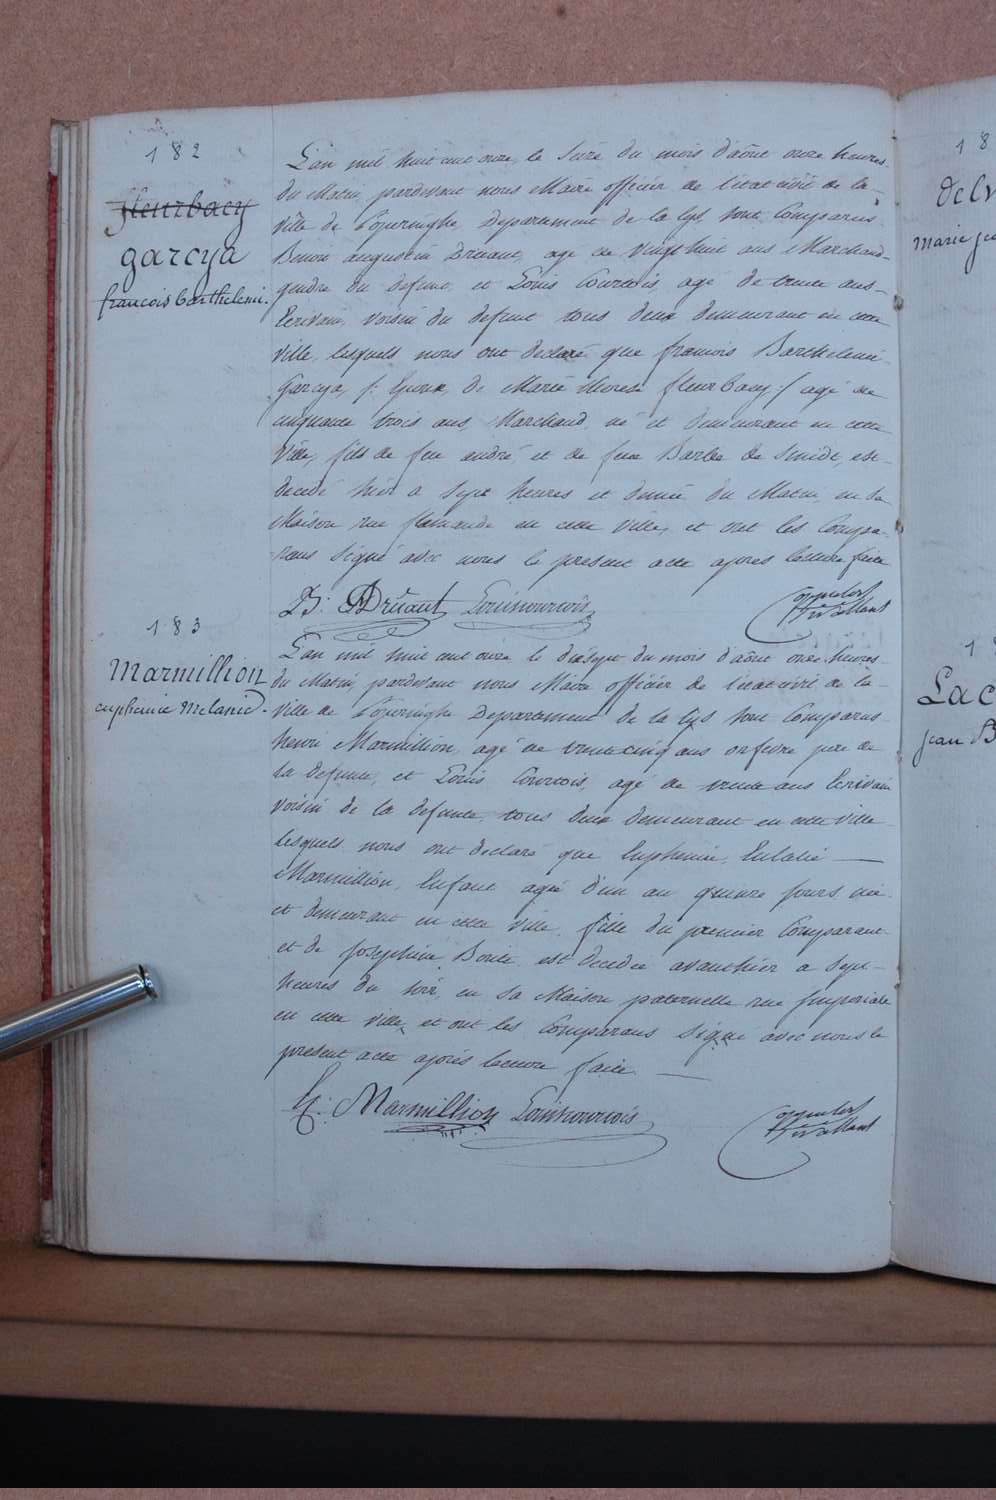 182
fleurbaey
garcya
francois barthelemi.
L'an mil huit cent onze, le seize du mois d'août onze heures
du Matin, pardevant nous Maire officier de l'état civil de la
ville de Poperinghe Departement de la Lys, sont Comparus
Benoit augustin Druant, agé de vingt huit ans Marchand
gendre du defunt, et Louis Courtois, agé de trente ans
Ecrivain, voisin du defunt tous deux demeurant en cette
ville, lesquels nous ont declaré que francois Barthelemi
Garcya, /: Epoux de Marie therese fleurbaey :/ agé de
cinquante trois ans, Marchand, né et demeurant en cette
ville, fils de feu andré, et de feue Barbe de Smidt, est
decedé hier a sept heures et demie du Matin, en sa
Maison rue flamande en cette ville, et ont les Compa-
rans signé avec nous le present acte après lecture faite
B: Druant Louis Courtois
183
Marmillion
euphemie Melanie.
L'an mil huit cent onze le dix sept du mois d'août onze heures
du Matin, pardevant nous Maire officier de l'état civil de la
ville de Poperinghe Departement de la Lys sont Comparus
henri Marmillion, agé de trente cinq ans orfevre père de
la defunte, et Louis Courtois, agé de trente ans Ecrivain
voisin de la defunte, tous deux demeurant en cette ville
lesquels nous ont declaré que Euphemie, Eulalie
Marmillion, Enfant agée d'un an quinze jours née
et demeurant en cette ville, fille du premier Comparant
et de Josephine est decedée avanthier a sept
heures du soir, en sa Maison paternelle rue Imperiale
en cette ville, et ont les Comparans signé avec nous le
present acte après lecture faite.
h: Marmillion Louis Courtois
18
Marie
Lac
jean B